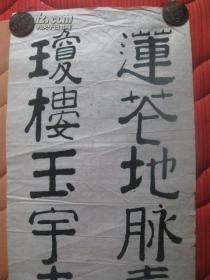 蓮花地脉
瓊樓玉宇